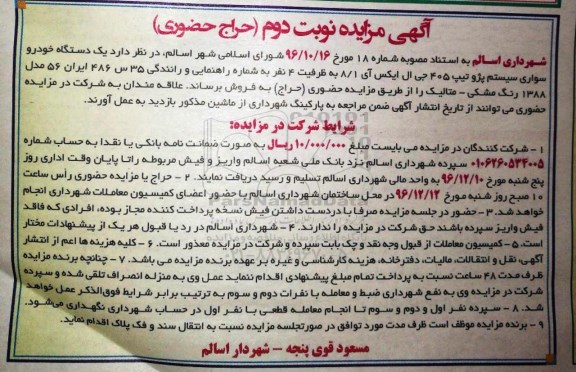 آگهی مزایده نوبت دوم (حراج حضوری)
شهرداری اسالم به استناد مصوبه شماره ۱۸ مورخ ۹۶/۱۰/۱۶ شورای اسلامی شهر اسالم، در نظر دارد یک دستگاه خودرو
سواری سیستم پژو تیپ ۴۰۵ جی ال ایکس آی ۸/۱ به ظرفیت ۴ نفر به شماره راهنمایی و رانندگی ۳۵ س ۴۸۶ ایران ۵۶ مدل
۱۳۸۸ رنگ مشکی - متالیک را از طریق مزایده حضوری (حراج) به فروش برساند. علاقه مندان به شرکت در مزایده
حضوری می توانند از تاریخ انتشار آگهی ضمن مراجعه به پارکینگ شهرداری از ماشین مذکور بازدید به عمل آورند.
شرایط شرکت در مزایده:
۱ - شرکت کنندگان در مزایده می بایست مبلغ ۱۰/۰۰۰/۰۰۰ ریال به صورت ضمانت نامه بانکی یا نقدا به حساب شماره
۰۱۰۶۲۶۰۵۳۴۰۰۵ سپرده شهرداری اسالم نزد بانک ملی شعبه اسالم واریز و فیش مربوطه را تا پایان وقت اداری روز
پنج شنبه مورخ ۹۶/۱۲/۱۰ به واحد مالی شهرداری اسالم تسلیم و رسید دریافت نمایند. ۲ - حراج یا مزایده حضوری رأس ساعت
۱۰ صبح روز شنبه مورخ ۹۶/۱۲/۱۲ در محل ساختمان شهرداری اسالم با حضور اعضای کمیسیون معاملات شهرداری انجام
خواهد شد. ۳ - حضور در جلسه مزایده صرفا با دردست داشتن فیش نسخه پرداخت کننده مجاز بوده، افرادی که فاقد
فیش واریز سپرده باشند حق شرکت در مزایده را ندارند. ۴ - شهرداری اسالم در رد یا قبول هر یک از پیشنهادات مختار
است. ۵ - کمیسیون معاملات از قبول وجه نقد و چک بابت سپرده و شرکت در مزایده معذور است. ۶ - کلیه هزینه ها اعم از انتشار
آگهی، نقل و انتقالات، مالیات، دفترخانه، هزینه کارشناسی و غیره بر عهده برنده مزایده می باشد. ۷ - چنانچه برنده مزایده
ظرف مدت ۴۸ ساعت نسبت به پرداخت تمام مبلغ پیشنهادی اقدام ننماید عمل وی به منزله انصراف تلقی شده و سپرده
شرکت در مزایده وی به نفع شهرداری ضبط و معامله با نفرات دوم و سوم به ترتیب برابر شرایط فوق الذکر عمل خواهد
شد. ۸ - سپرده نفر اول و دوم و سوم تا انجام معامله قطعی با نفر اول در حساب شهرداری نگهداری می شود.
۹ - برنده مزایده موظف است ظرف مدت مورد توافق در صورتجلسه مزایده نسبت به انتقال سند و فک پلاک اقدام نماید.
مسعود قوی پنجه - شهردار اسالم